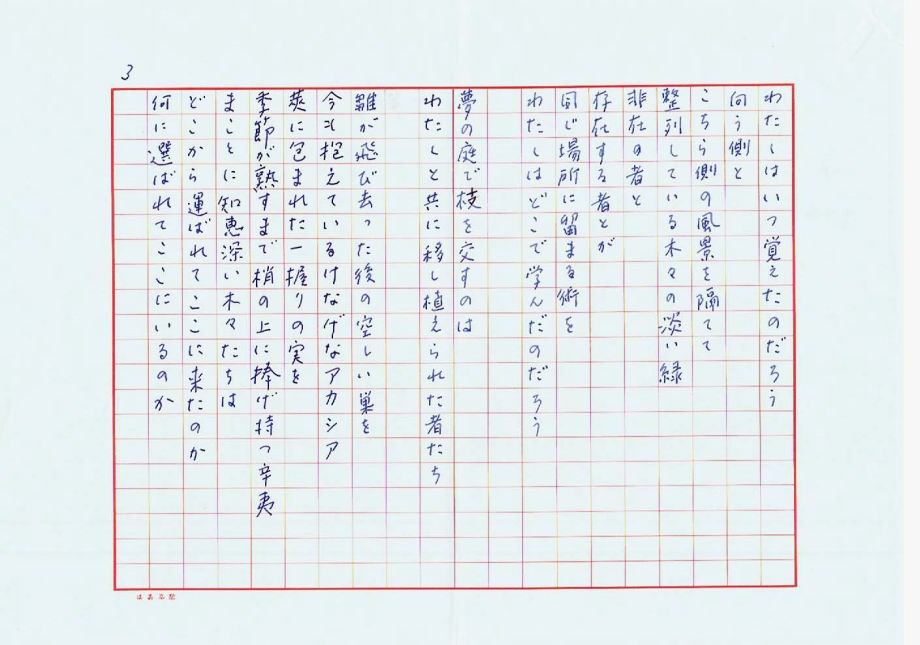 3
わたしはいつ覚えたのだろう
向う側と
こちら側の風景を隔てて
整列している木々の淡い緑
非在の者と
存在する者とが
同じ場所に留まる術を
わたしはどこで学んだのだろう
夢の庭で枝を交すのは
わたしと共に移し植えられた者たち
雛が飛び去った後の空しい巣を
今も抱えているけなげなアカシア
莢に包まれた一握りの実を
季節が熟すまで梢の上に捧げ持つ辛夷
まことに知恵深い木々たちは
どこから運ばれてここに来たのか
何に選ばれてここにいるのか